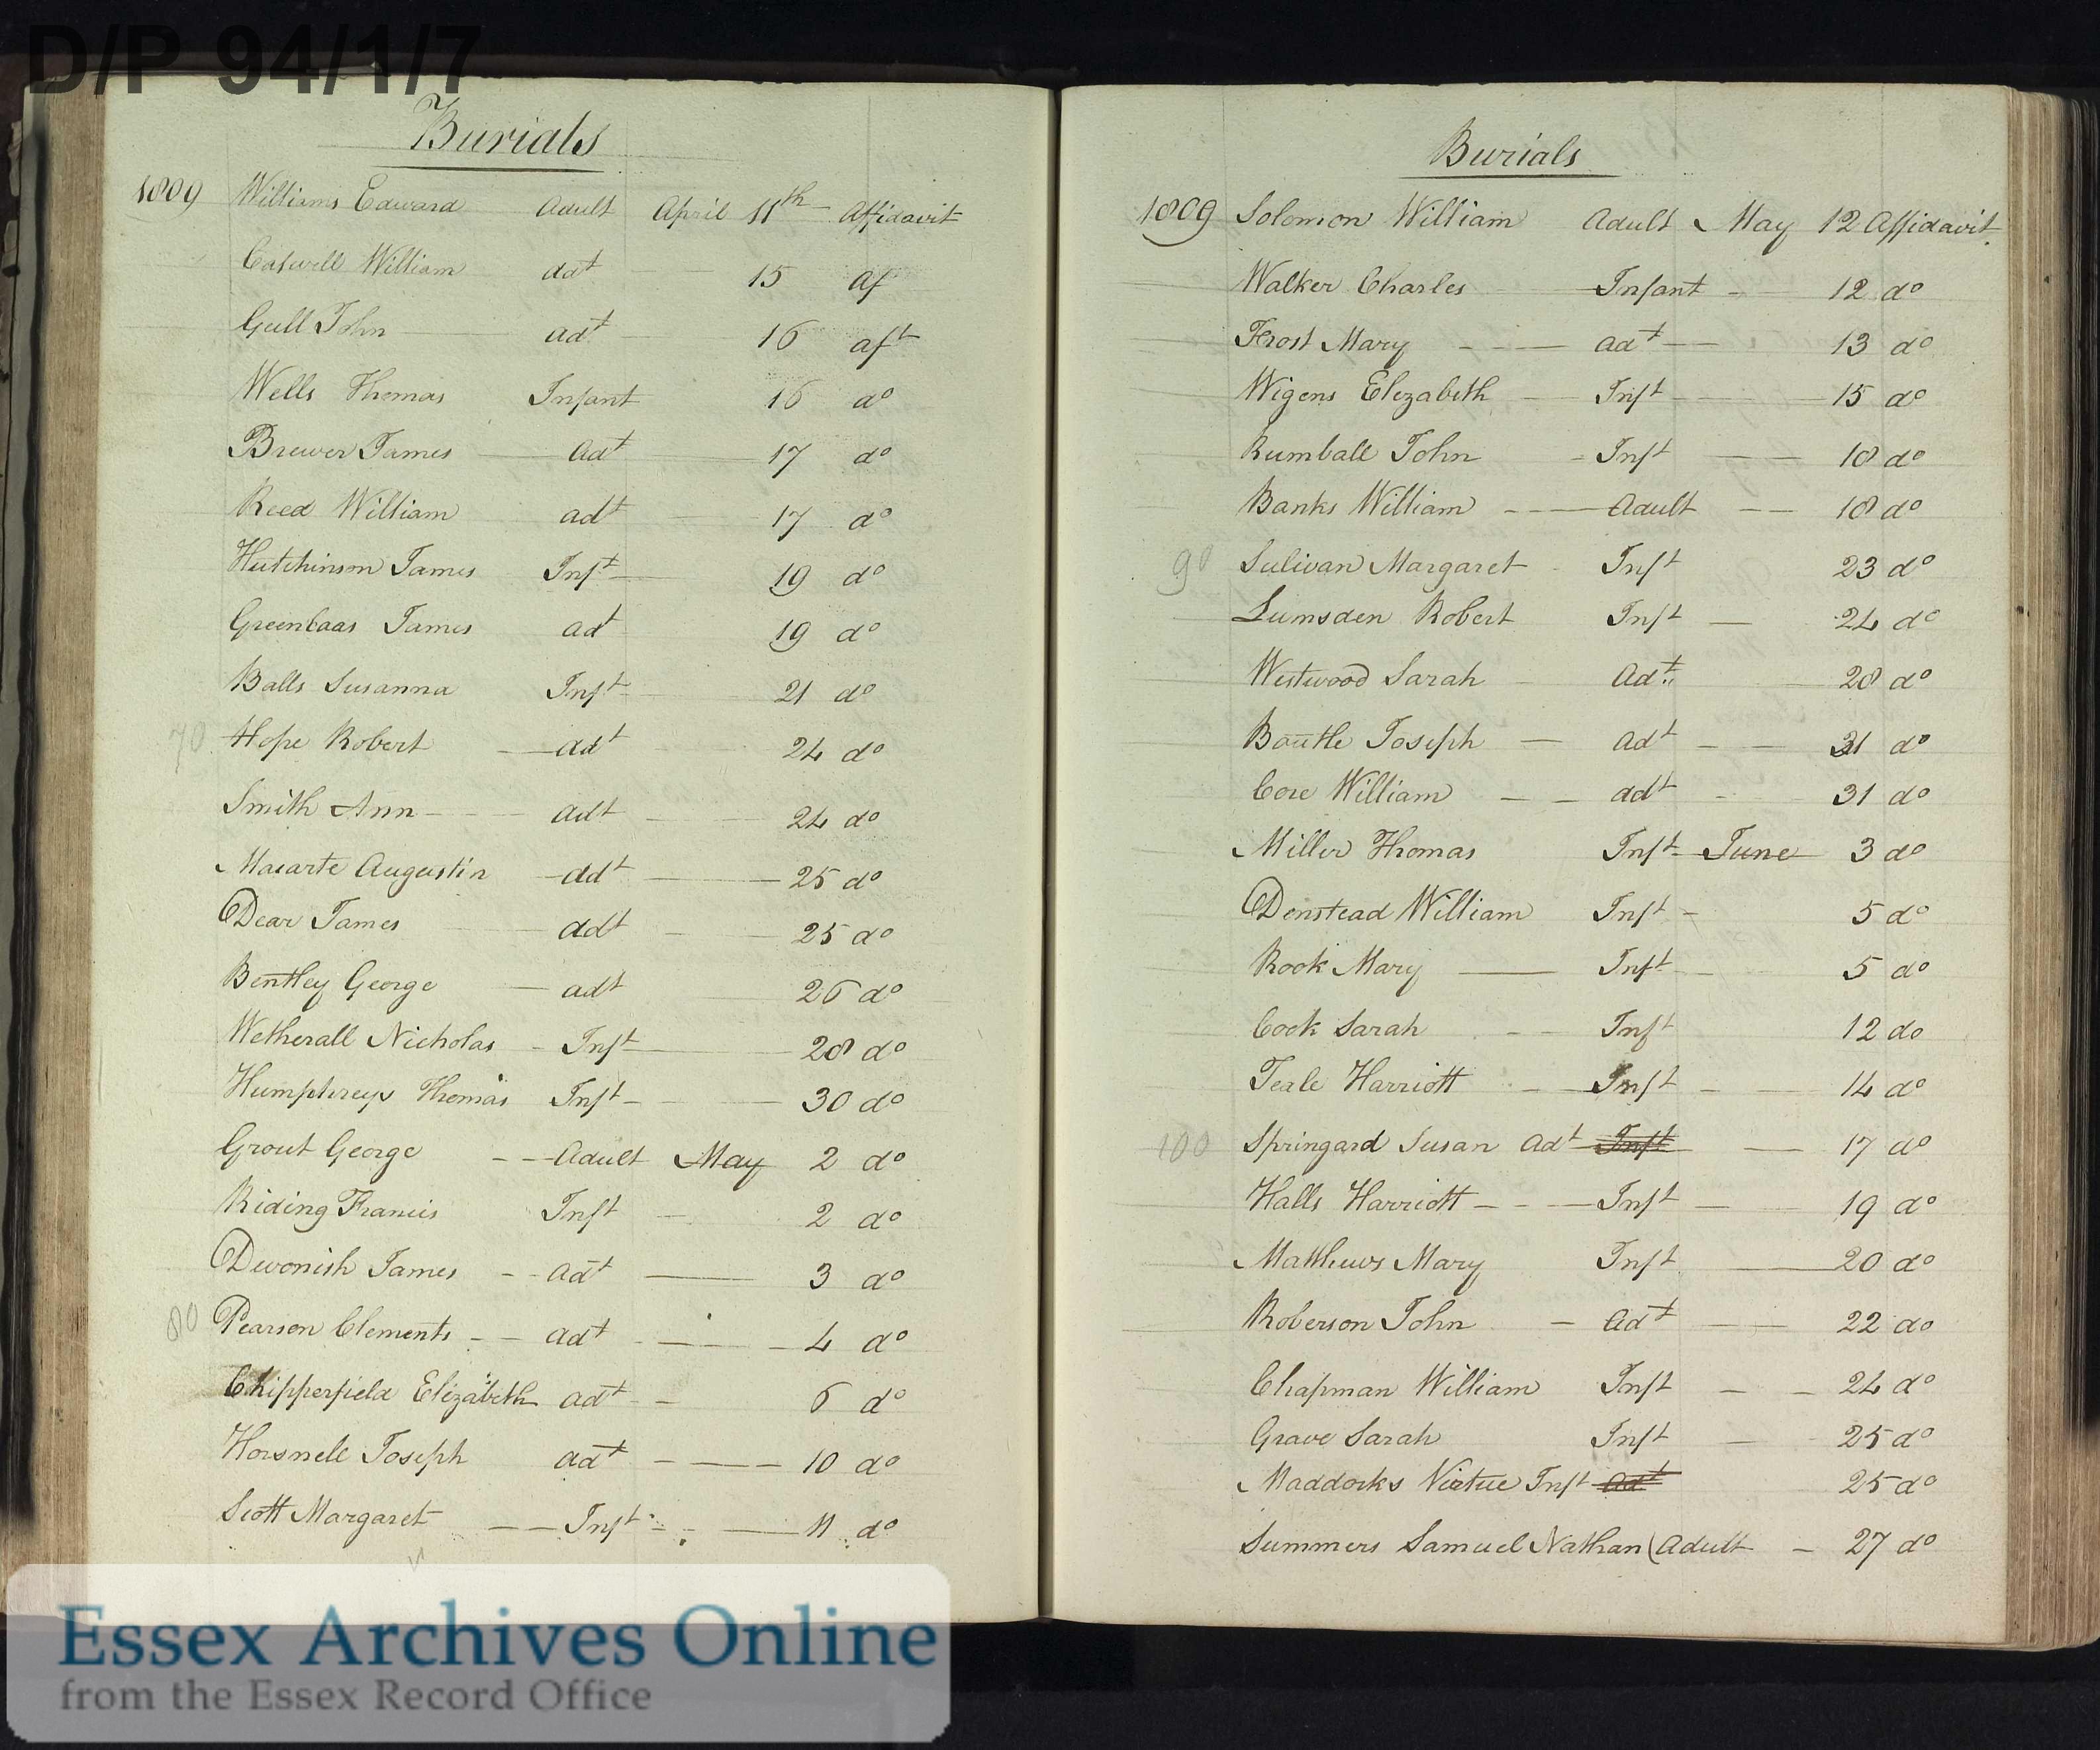 D/P 94/1/7
Burials
1809 Williams Edward Adult April 11th Affidavit
Caswell William adt 15 af
Gull John adt 16 aft
Wells Thomas Infant 16 do
Brewer James adt 17 do
Reed William adt 17 do
Hutchinson James Inft 19 do
Greenlaas James adt 19 do
Balls Susanna Inft 21 do
70 Hope Robert adt 24 do
Smith Ann adt 24 do
Macarte Augustin adt 25 do
Dear James adt 25 do
Bentley George adt 26 do
Wetherall Nicholas Inft 28 do
Humphreys Thomas Inft 30 do
Grout George Adult May 2 do
Riding Francis Inft 2 do
Devonish James adt 3 do
80 Pearson Clements adt 4 do
Chipperfield Elizabeth adt 6 do
Horsnell Joseph adt 10 do
Scott Margaret Inft 11 do
Burials
1809 Solomon William Adult May 12 Affidavit
Walker Charles Infant 12 do
Frost Mary adt 13 do
Wigens Elizabeth Inft 15 do
Rumball John Inft 18 do
Banks William Adult 18 do
90 Sulivan Margaret Inft 23 do
Lumsden Robert Inft 24 do
Westwood Sarah Adt 28 do
Boutle Joseph adt 31 do
Core William adt 31 do
Miller Thomas Inft June 3 do
Denstead William Inft 5 do
Rook Mary Inft 5 do
Cock Sarah Inft 12 do
Teale Harriott Inft 14 do
100 Springard Susan Adt Inft 17 do
Halls Harriott Inft 19 do
Matthews Mary Inft 20 do
Roberson John adt 22 do
Chapman William Inft 24 do
Grave Sarah Inft 25 do
Maddocks Virtue Inft adt 25 do
Summers Samuel Nathan (Adult 27 do
Essex Archives Online
from the Essex Record Office